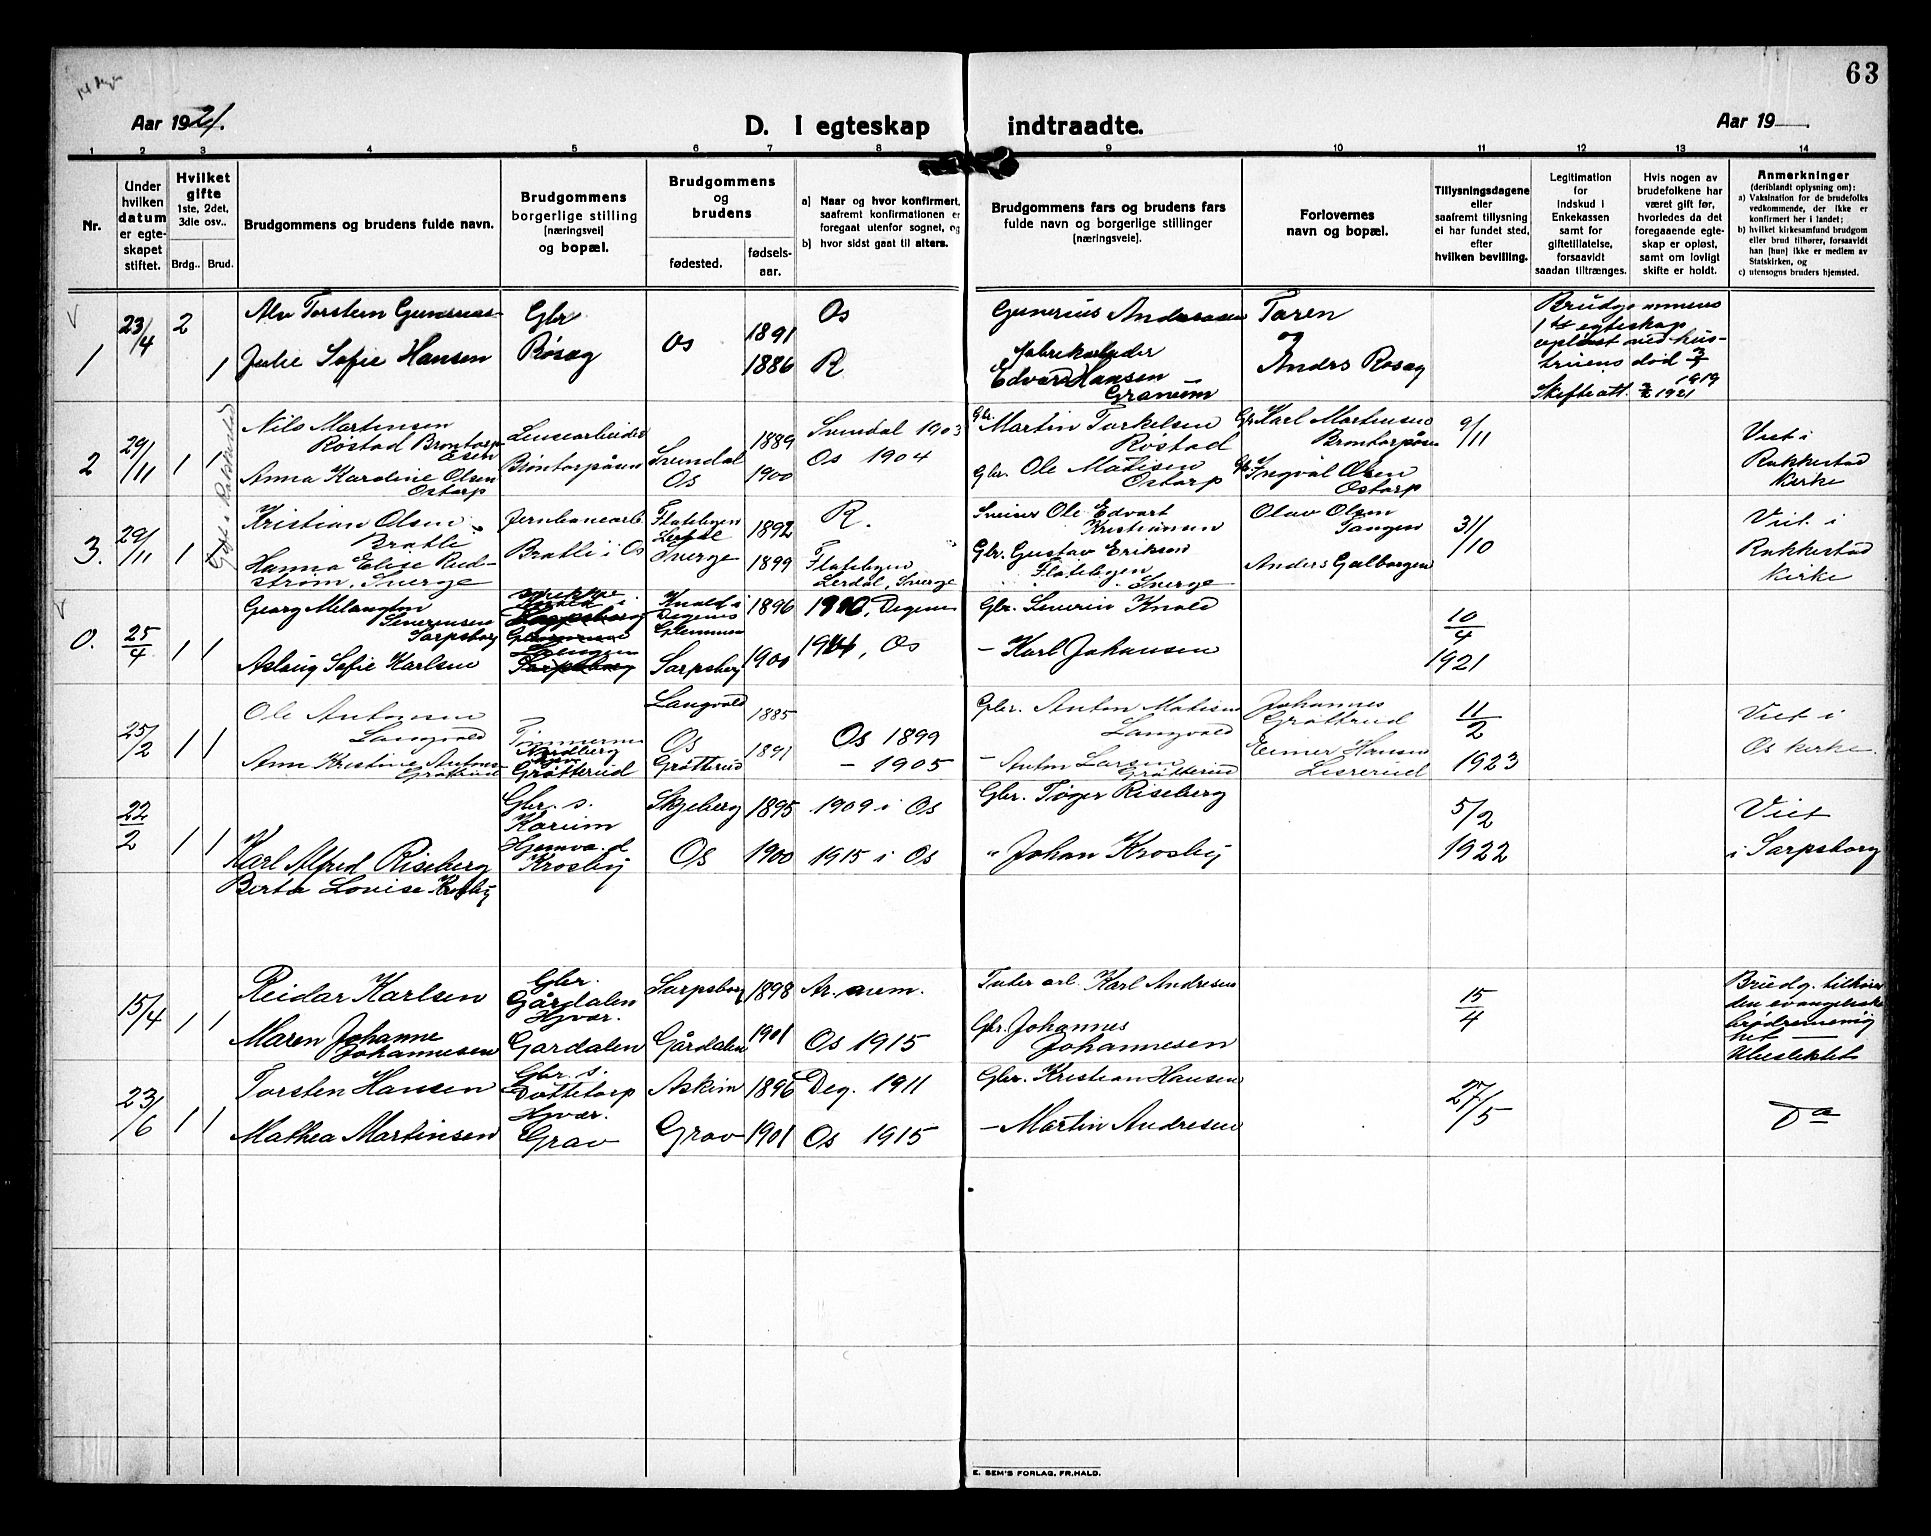 63
Aar 1921.
D. I egteskap indtraadte.
Aar 19
1 2 3 4 5 6 7 8 9 10 11 12 13 14
Nr.
Under
hvilken
datum
er egte-
skapet
stiftet.
Hvilket
gifte
1ste, 2det,
3die osv.
Brdg. Brud.
Brudgommens og brudens fulde navn.
Brudgommens
borgerlige stilling
[næringsvei]
og bopæl.
Brudgommens
og
brudens
fødested.
fødsels-
aar.
a) Naar og hvor konfirmert,
saafremt konfirmationen er
foregaat utenfor sognet, og
b) hvor sidst gaat til alters.
Brudgommens fars og brudens fars
fulde navn og borgerlige stillinger
[næringsveie].
Forlovernes
navn og bopæl.
Tillysningsdagene
eller
saafremt tillysning
ei har fundet sted,
efter
hvilken bevilling.
Legitimation
for
Indskud i
Enkekassen
samt for
giftetillatelse,
forsaavidt
saadan tiltrænges.
Hvis nogen av
brudefolkene har
været gift før,
hvorledes da det
foregaaende egte-
skap er opløst,
samt om lovligt
skifte er holdt.
Anmerkninger
(deriblandt oplysning om):
a) Vaksination for de brudefolks
vedkommende, der ikke er
konfirmert her i landet;
b) hvilket kirkesamfund brudgom
eller brud tilhører, forsaavidt
han [hun] ikke er medlem av
Statskirken, og
c) utensogns bruders hjemsted.
1
23/4 2
1
Alv Torstein
Julie Sofie Hansen
Gbr
Røsæg
Os
1891
1886
Os
R
Gunerius Andreasen
fabrikarbeider
Edvard Hansen
Granum
Toren
og
Anders Rosæg
Brudgommens
1ste egteskap
opløst ved hus-
truens død
1919
Skifteatt. 1921
Gift i Rakkestad
2
29/11 1 1
Nils Martinsen
Røstad Brøntorp-
Anna Karoline Olsen
Ostorp
Lensearbeider
Brøntorpåsen
Svindal
Os
1889
1900
Svindal 1903
Os 1904
Gbr. Martin Torkelsen
Røstad
Gbr. Ole Matisen
Ostorp
Gbr. Karl Martinsen
Brøntorpåsen
Gbr. Ingval Olsen
Ostorp
9/11
Viet i
Rakkestad
Kirke
3.
29/11 1
Kristian Olsen
Bratli
Hanna Elise Rud-
strøm, Sverge
Jernbanearb.
Bratli i Os
Flatebyen
Lerdal
Sverge
1892
1899
R.
Flatebyen
Lerdal, Sverge
Sveiser Ole Edvart
Kristiansen
Gbr. Gustav Erikson
Flatebyen
Sverge
Olav Olsen
Tangen
Anders Galborgen
31/10
Viet i
Rakkestad
Kirke
0.
25/4 1 1
Georg Melangton
Severinsen
Sarpsborg
Aslaug Sofie Karlsen
Sarpsborg
Knalt i
Degenes
Glemmen
Sarpsborg
1896
1900
1910, Degenes
1914, Os
Gbr. Severin Knold
– Karl Johansen
10/4
1921
25/2 1 1
Ole Antonsen
Langvold
Ane Kristine Antons-
Grøtterud
Nordberg
Grøtterud
Langvold
Os
Grøtterud
1885
1891
Os 1899
– 1905
Gbr. Anton Matisen
Langvold
– Anton Larsen
Grøtterud
Johannes
Grøtterud
Einer Hansen
Lisrerud
11/2
1923
Viet i
Os kirke.
22/2 1 1
Karl Alfred Riseberg
Berta Lovise Krosby
Gbr. s.
Karum
Hjemva. d
Krosby
Skjeberg
Os
1895
1900
1909 i Os
1915 i Os
Gbr. Tøger Riseberg
" Johan Krosby
5/2
1922
Viet
i Sarpsborg
15/4 1 1
Reidar Karlsen
Maren Johanne
Johannesen
Gbr.
Gårdalen
Hjvær.
Gardalen
Sarpsborg
Gårdalen
1898
1901
Os 1915
Karl Andresen
Gbr. Johannes
Johannesen
15/4
Brudg. tilhører
den evangeliske
brødremenig
het —
Ubeslektet
23/6 1 1
Torsten Hansen
Mathea Martinsen
Gbr. s.
Døttetorp
Hjvær.
Grav
Askim
Grav
1896
1901
Deg. 1911
Os 1915
Gbr. Kristian Hansen
– Martin Andresen
27/5
Do
E. SEM'S FORLAG, FR.HALD.